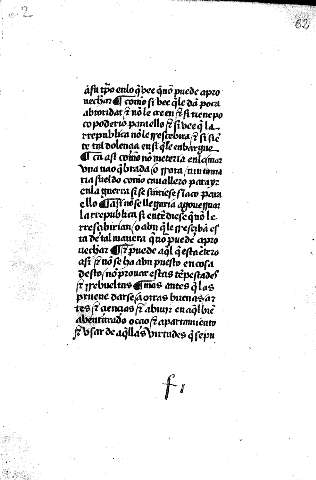 2
62
asu tp̃o enlo q̃ vee q̃ nõ puede apro
uechar ¶ como si vee q̃ le dã poca
abtoridat ⁊ nõ le creen ⁊ si tiene po
co poderio para ello ⁊ si vee q̃ la
rrepublica nõ le rrescibira ⁊ si siẽ
te tal dolencia en si q̃ le enbargue
¶ Ca asi como nõ meteria en la mar
vna nao q̃brada o rrota ni toma
ria sueldo como cauallero para yr
en la guerra si se sintiese flaco para
ello ¶ asi nõ se llegaria a gouernar
la rrepublica si entẽdiese q̃ nõ le
rrescibirian o abn q̃ le rresciba es
ta de tal manera q̃ nõ puede apro
uechar ¶ ⁊ puede aq̃l q̃ esta ẽtero
asi ⁊ nõ se ha abn puesto en cosa
desto nõ prouar estas tẽpestades
⁊ rrebueltas ¶ mas antes q̃ las
prueue darse a otras buenas ar
tes ⁊ ciencias ⁊ a beuir en aq̃l biẽ
abenturado ocio ⁊ apartamiento
⁊ vsar de aq̃llas virtudes q̃ se pu
f 1